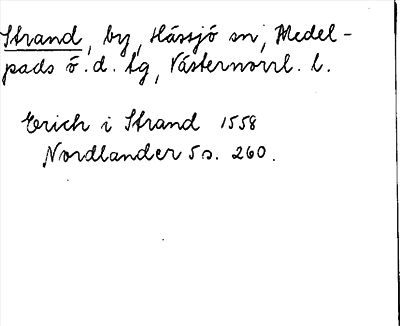 Strand, by, Hässjö sn, Medel-
pads ö. d. tg, Västernorrl. l.
Erich i Strand 1558
Nordlander 5 s. 260.